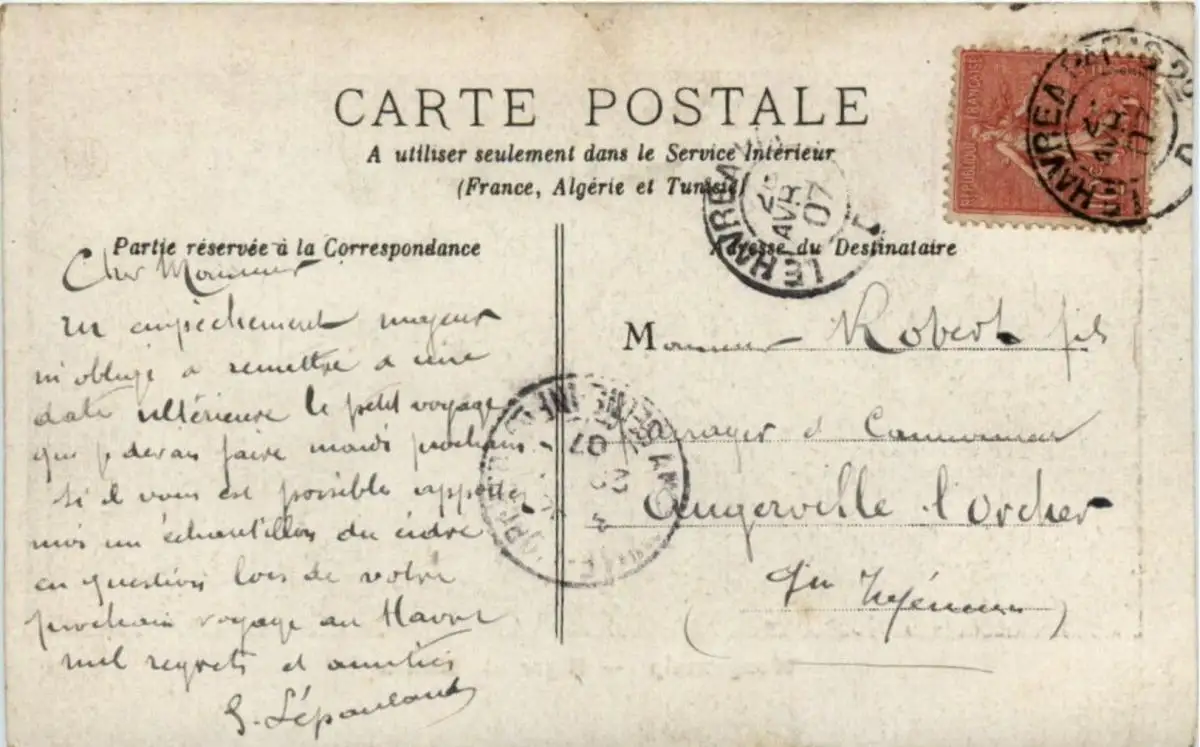 CARTE POSTALE
A utiliser seulement dans le Service Intérieur
(France, Algérie et Tunisie)
Partie réservée à la Correspondance
Cher Monsieur
un empêchement majeur
m'oblige a remettre a une
date ultérieure le petit voyage
que je devais faire mardi prochain
si il vous est possible apportez
moi un échantillon du cidre
en question lors de votre
prochain voyage au Havre
mil regrets et amitiés
Adresse du Destinataire
Monsieur Robert fils
Angerville l'Orcher
Inférieure
REPUBLIQUE FRANÇAISE
LE HAVRE A PARIS
AVRIL 07
LE HAVRE A
AVRIL 07
SEINE INF
07